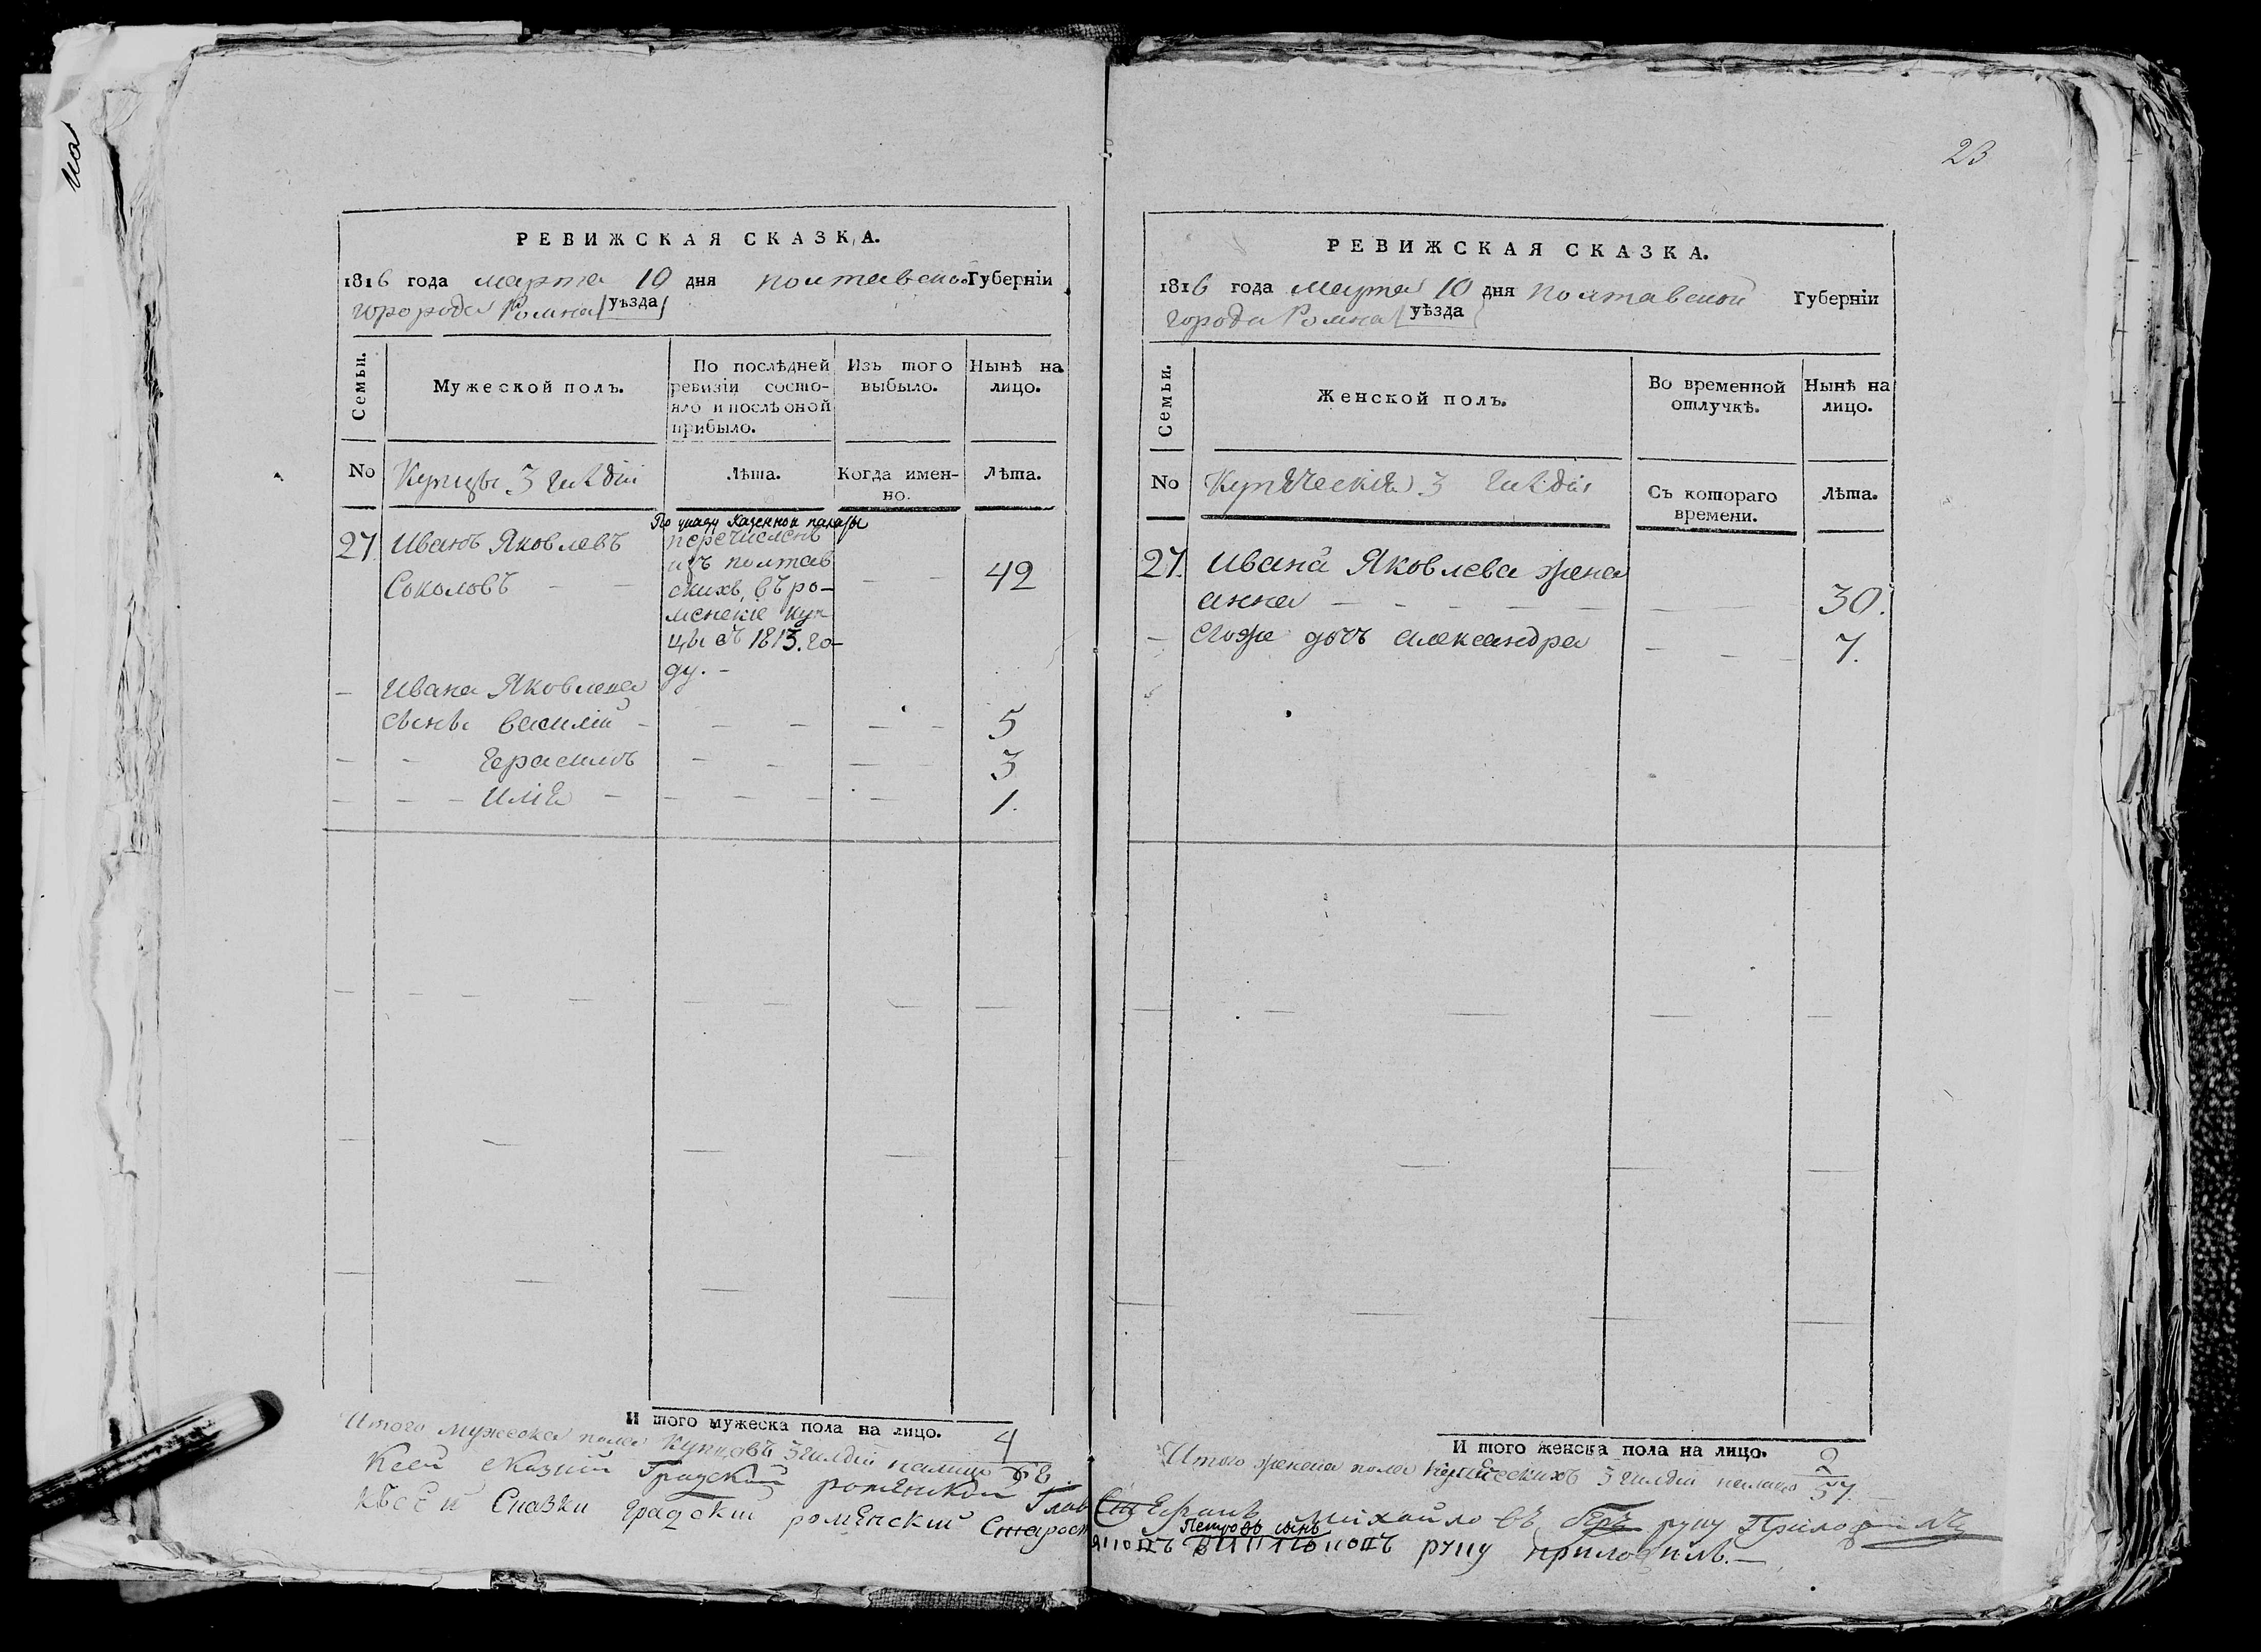 на
23
РЕВИЖСКАЯ СКАЗКА.
1816 года марта 10 дня полтавской Губерніи
города Ромна уѣзда
Семьи.
Мужеской полъ.
По послѣдней ревизіи состо-
яло и послѣ оной
прибыло.
Изъ того
выбыло.
Нынѣ на
лицо.
No
Купцы 3 гилдіи
Лѣта.
Когда имен-
но.
Лѣта.
По указу Казенной палаты
27 Иванъ Яковлевъ перечисленъ
изъ полтав
Соколовъ — — скихъ, въ ро- — — 42
менские куп
цы въ 1813. го-
ду. -
— Ивана Яковлева
сыны василій - — — — — 5
— - Герасимъ — — — — 3
— — — Илія — — — — — 1.
И того мужеска пола на лицо. 4
Итого мужеска пола купцовъ 3 гилдіи налицо
Ксей сказки Градский роменский Глав
Къ сей Сказки градский роменский Старост
РЕВИЖСКАЯ СКАЗКА.
1816 года Марта 10 дня полтавской Губерніи
города Ромна уѣзда
Семьи.
Женской полъ.
Во временной
отлучкѣ.
Нынѣ на
лицо.
No
Купѣческія 3 гилдіи
Съ котораго
времени.
Лѣта.
27. Ивана Яковлева жена
анна — — — — — — — — 30.
— Егожъ дочъ александра — — — 7.
И того женска пола на лицо. 2
Итого женска пола купческихъ 3 гилдіи налицо 57.
Михайловъ руку Приложилъ
Петровъ сынъ
руку приложилъ. —